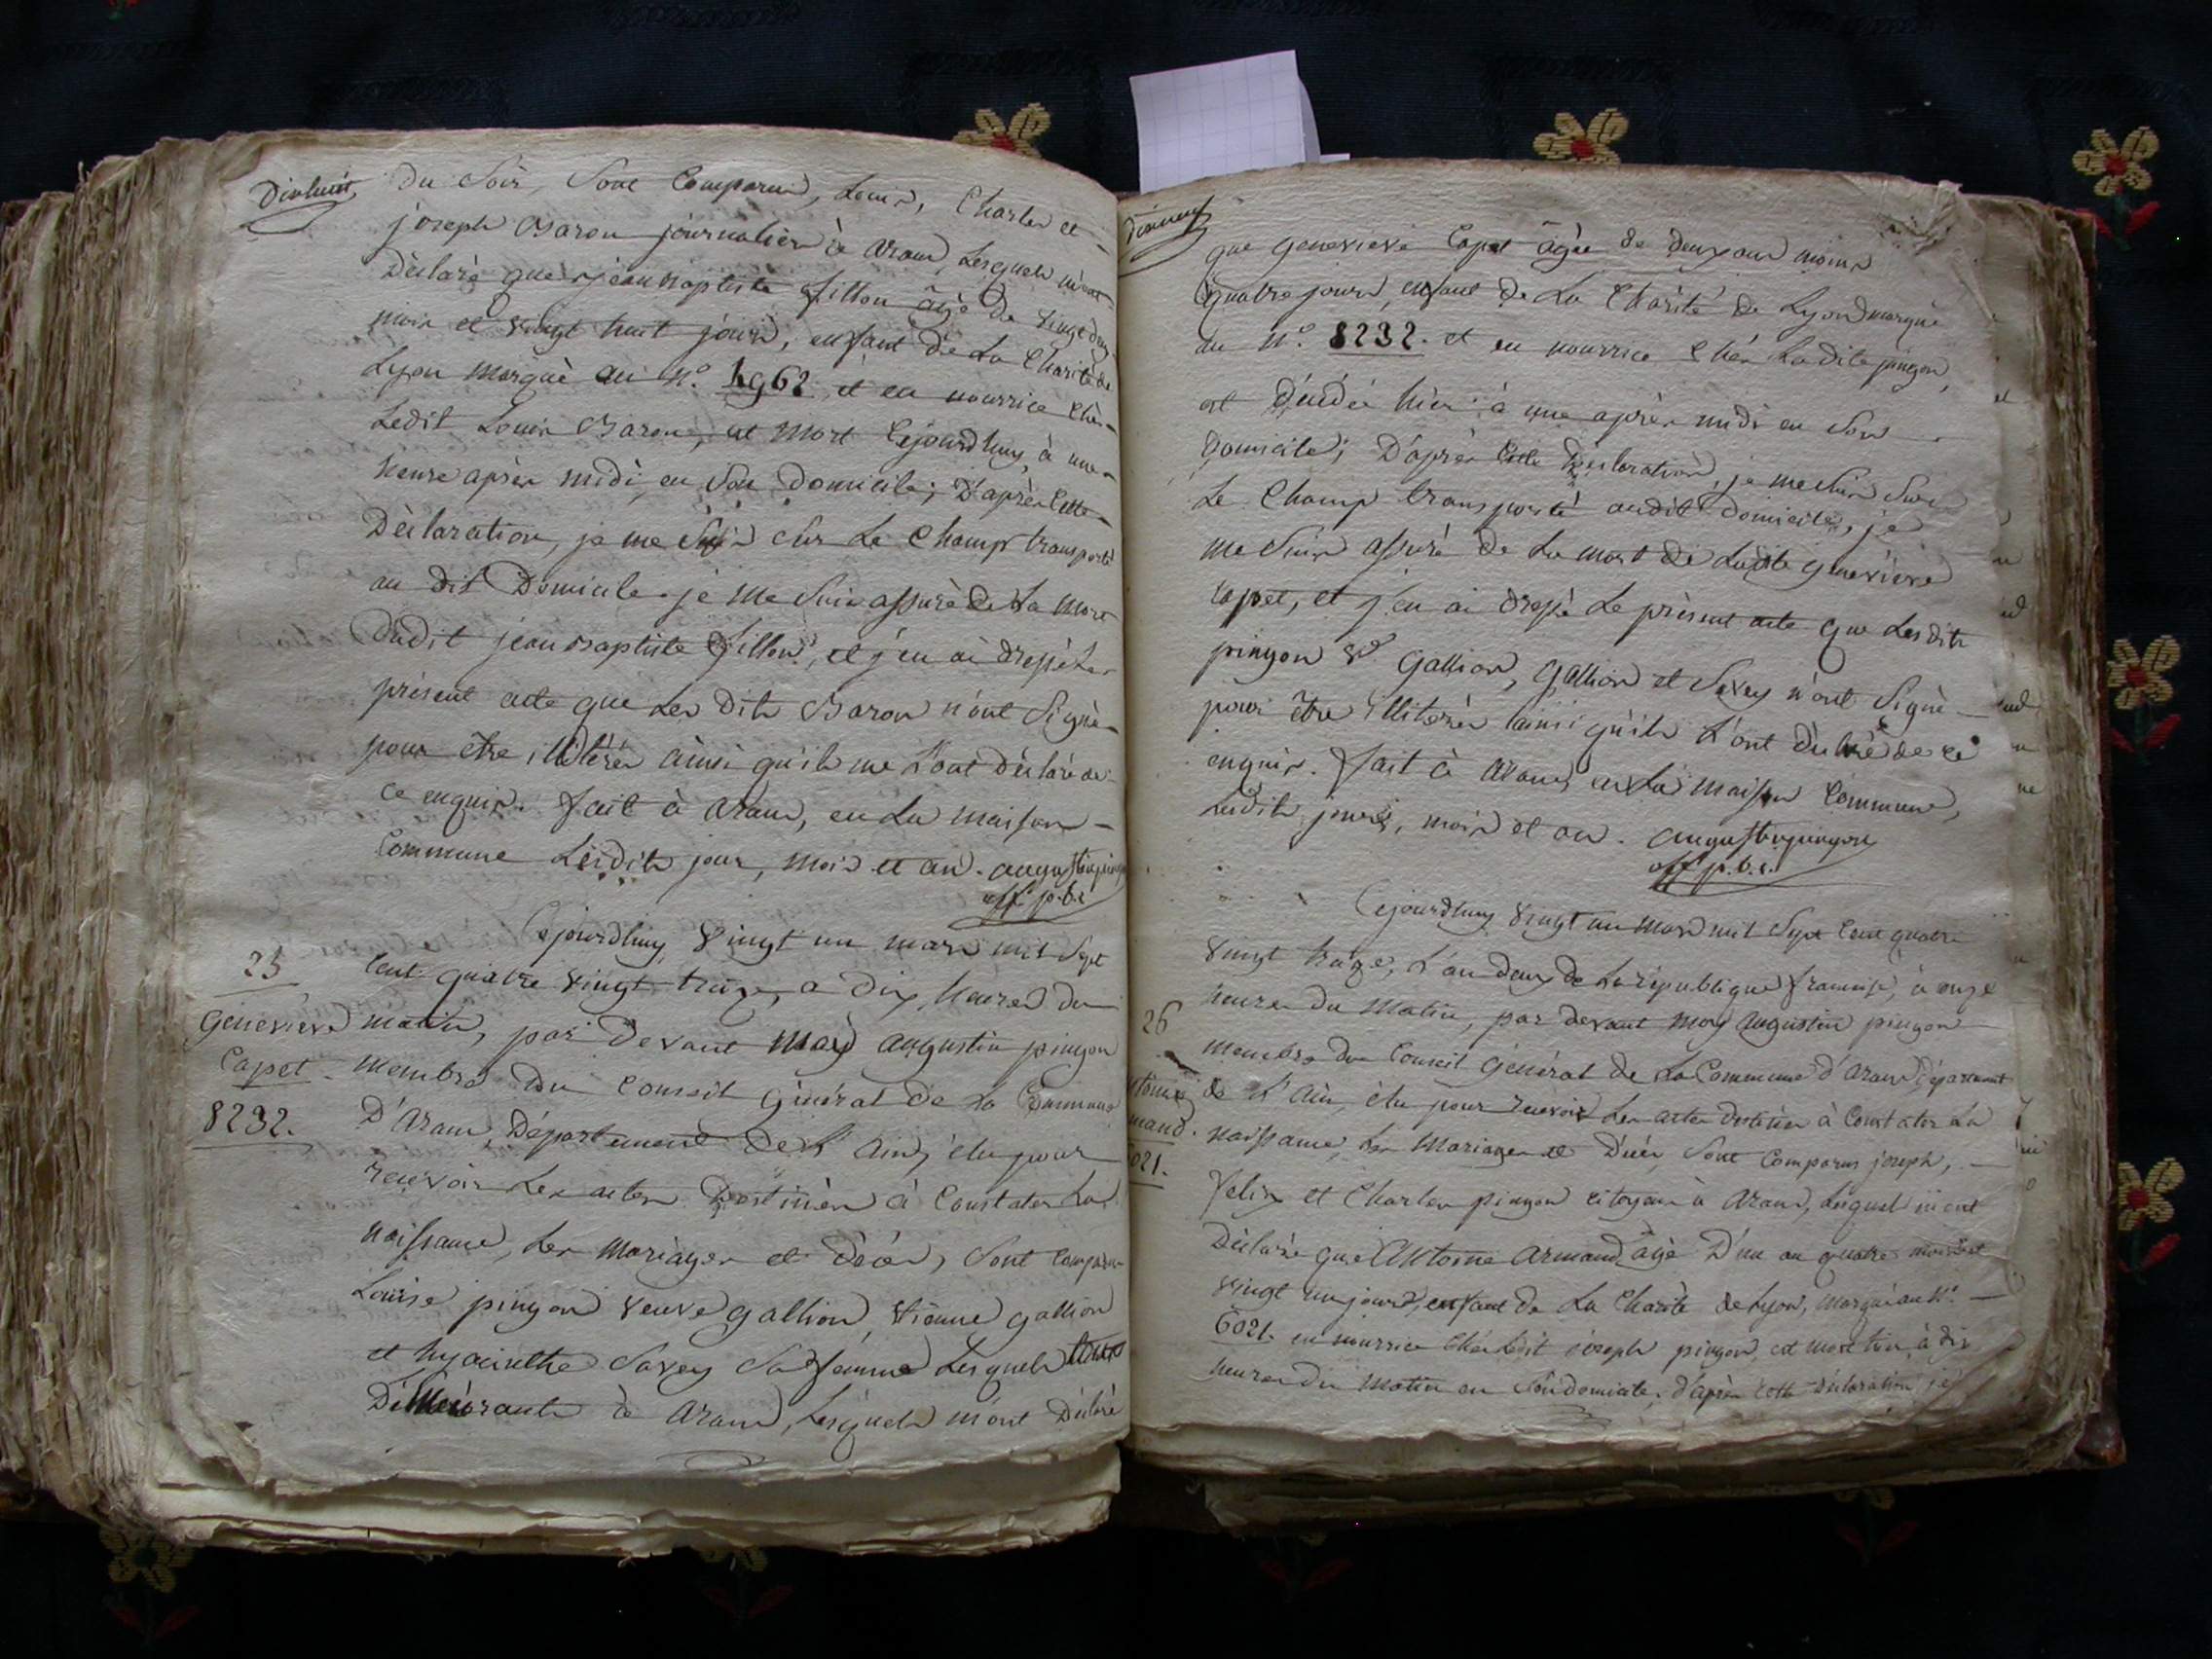 Dixhuit
Du Soir, Sont Comparu, Louis, Charles et
joseph Baron journaliers à aranc, Lesquels m'ont
Déclaré que jean Baptiste fillon âgé de vingt deux
mois et vingt huit jours, enfant de La Charité de
Lyon marqué au N.° 1962 et en nourrice chés
Ledit Louis Baron, est Mort Cejourdhuy à une
heure après midi en Son Domicile; D'après Cette
Déclaration, je me Suis sur Le Champ transporté
au dit Domicile. je Me Suis assuré de La Mort
Dudit jean Baptiste fillon, et j'en ai dressé Le
présent acte que Les dits Baron n'ont Signé
pour être illiterés ainsi qu'ils me L'ont Déclaré de
ce enquis. fait à aranc, en La maison
Commune Lesdits jour, mois et an. augustin pingon
off. p. b. c.
25
Genevieve
Capet
8232.
Cejourdhuy vingt un mars mil Sept
Cent quatre vingt treize, a dix heures du
matin, par Devant Moy augustin pingon
Membre Du Conseil Général de La Commune
D'aranc, Département De L'ain, élu pour
recevoir Les actes Destinés à Constater La
naissance, Les Mariages et décés, Sont Comparu
Louise pingon veuve gallion, Etienne gallion
et hyacinthe Savey Sa femme Lesquels tous
Demeurants à aranc, Lesquels m'ont Déclaré
Dixneuf
que genevieve Capet âgée de deux ans moins
quatre jours, enfant de La Charité de Lyon marqué
au N.° 8232. et en nourrice chés Ladite pingon,
est Décédée hier à une après midi en Son
Domicile; D'après Cette Declaration, je me Suis Sur
Le Champ transporté audit Domicile, je
me Suis assuré de La mort de Ladite genevieve
Capet, et j'en ai dressé Le présent acte que Lesdits
pingon Ve. Gallion, Gallion et Savey n'ont Signé
pour être illiterés ainsi qu'ils L'ont déclaré de ce
enquis. fait à aranc en La maison Commune,
Lesdits jours, mois et an. augustin pingon
off. p. b. c.
26
toine
mand.
021.
Cejourdhuy vingt un mars mil Sept Cent quatre
vingt treize, L'an deux de La république française, à onze
heures du Matin, par devant moy augustin pingon
membre du Conseil Général de La Commune d'aranc Département
de L'ain, élu pour recevoir Les actes destinés à Constater La
naissance, Les Mariages et Décés, Sont Comparus joseph,
felix et Charles pingon citoyens à aranc, Lesquels m'ont
Déclaré que Antoine armand âgé D'un an quatre mois et
vingt un jours, enfant de La Charité de Lyon, marqué au N.°
6021. en nourrice chés Ledit joseph pingon, est mort hier à dix
heures du Matin en Son domicile; d'après cette déclaration je